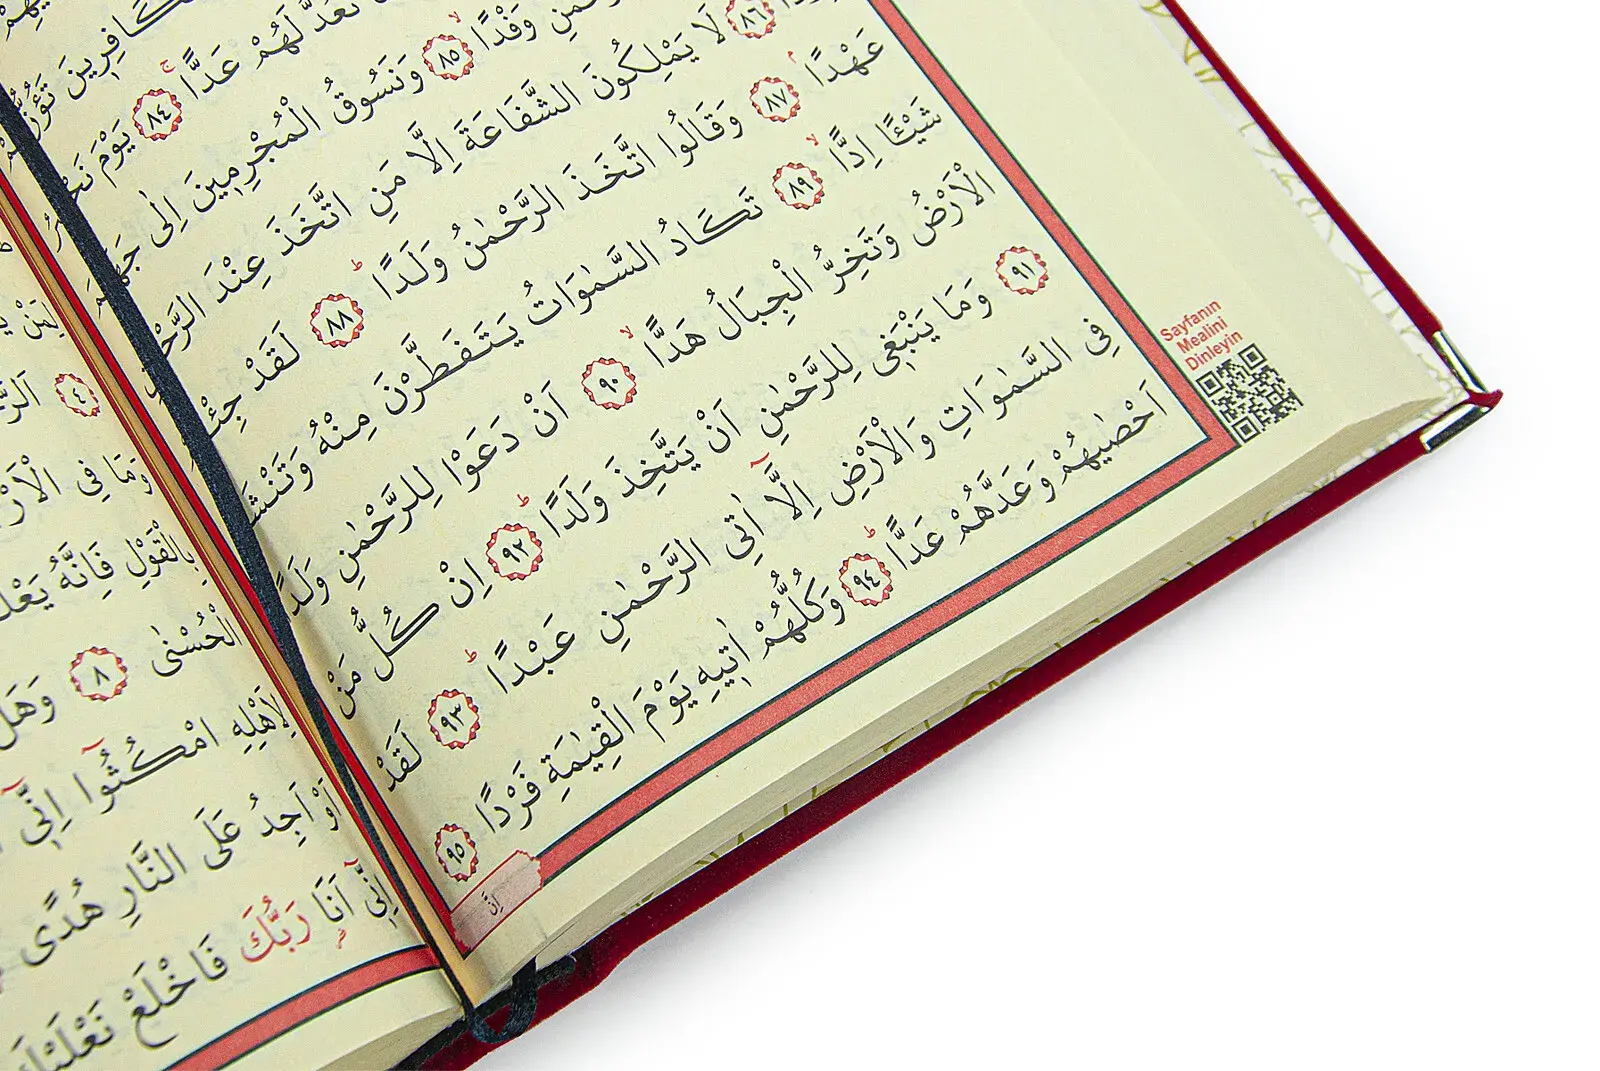 تَعُدُّ لَهُمْ عَدًّا ٨٤ يَوْمَ
وَفْدًا ٨٥ وَنَسُوقُ الْمُجْرِمٖينَ اِلٰى جَهَنَّمَ
٨٦ لَا يَمْلِكُونَ الشَّفَاعَةَ اِلَّا مَنِ اتَّخَذَ عِنْدَ الرَّحْمٰنِ
عَهْدًا ٨٧ وَقَالُوا اتَّخَذَ الرَّحْمٰنُ وَلَدًا ٨٨ لَقَدْ
شَيْـًٔا اِدًّا ٨٩ تَكَادُ السَّمٰوَاتُ يَتَفَطَّرْنَ مِنْهُ
الْاَرْضُ وَتَخِرُّ الْجِبَالُ هَدًّا ٩٠ اَنْ دَعَوْا لِلرَّحْمٰنِ وَلَدًا
٩١ وَمَا يَنْبَغٖي لِلرَّحْمٰنِ اَنْ يَتَّخِذَ وَلَدًا ٩٢ اِنْ كُلُّ مَنْ
فِي السَّمٰوَاتِ وَالْاَرْضِ اِلَّٓا اٰتِي الرَّحْمٰنِ عَبْدًا ٩٣ لَقَدْ
اَحْصٰيهُمْ وَعَدَّهُمْ عَدًّا ٩٤ وَكُلُّهُمْ اٰتٖيهِ يَوْمَ الْقِيٰمَةِ فَرْدًا ٩٥
اِنَّ
Sayfanın
Mealini
Dinleyin
٤
وَمَا فِي
بِالْقَوْلِ فَاِنَّهُ
الْحُسْنٰى ٨ وَهَلْ
لِاَهْلِهِ امْكُثُٓوا اِنّٖٓي
اَوْ اَجِدُ عَلَى النَّارِ هُدًى
اِنّٖٓي اَنَا رَبُّكَ فَاخْلَعْ نَعْلَيْكَ